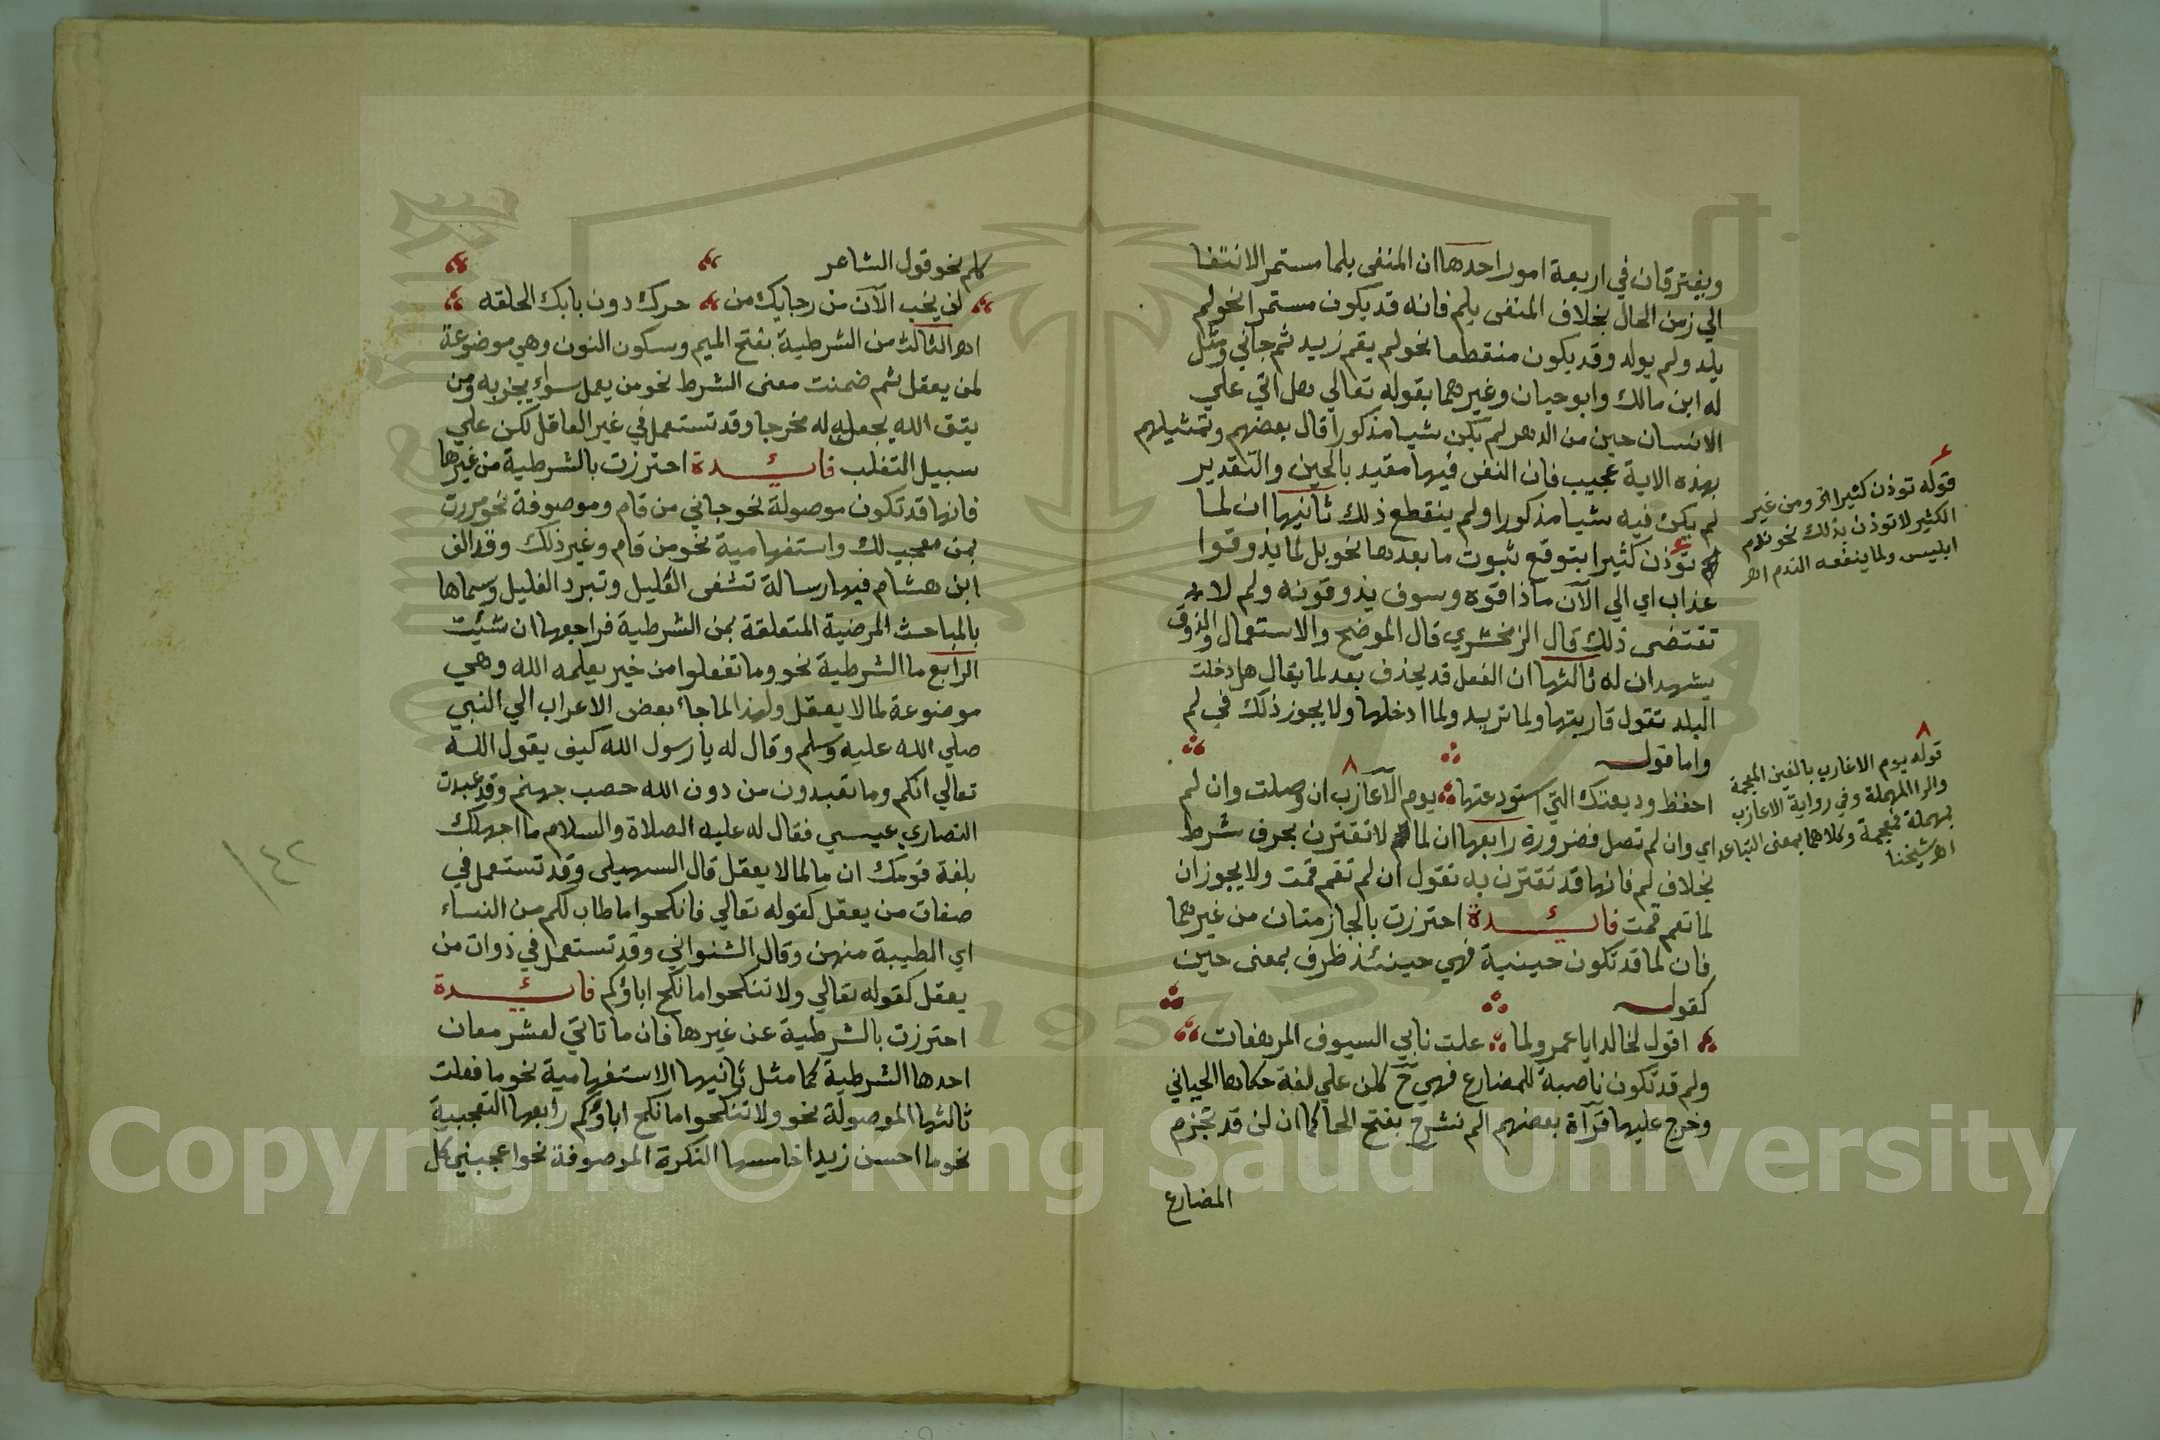 ويفترقان في اربعة امور احدها ان المنفى بلما مستمر الانتفا
الي زمن الحال بخلاف المنفى بلم فانه قد يكون مستمرا نحو لم
يلد ولم يولد وقد يكون منقطعا نحو لم يقم زيد ثم جاني ومثل
له ابن مالك وابو حيان وغيرهما بقوله تعالي هل اتي علي
الانسان حين من الدهر لم يكن شيا مذكورا قال بعضهم وتمثيلهم
بهذه الاية عجيب فان النفى فيها مقيد بالحين والتقدير
لم يكن فيه شيا مذكورا ولم ينقطع ذلك ثانيها ان لما
توذن كثيرا بتوقع ثبوت ما بعدها نحو بل لما يذوقوا
عذاب اي الي الآن ما ذاقوه وسوف يذوقونه ولم لا
تقتضى ذلك قال الزمخشري قال الموضح والاستعمال والذوق
يشهدان له ثالثها ان الفعل قد يحذف بعد لما يقال هل دخلت
البلد تقول قاربتها ولما تريد ولما ادخلها ولا يجوز ذلك في لم
واما قوله
احفظ وديعتك التي استودعتها يوم الآعازب ان وصلت وان لم
اي وان لم تصل فضرورة رابعها ان لما لا تقترن بحرف شرط
بخلاف لم فانها قد تقترن به تقول ان لم تقم قمت ولا يجوز ان
لما تقم قمت فائدة احترزت بالجازمتان من غيرهما
فان لما قد تكون حينية فهي حينئذ ظرف بمعنى حين
كقوله
اقول لخالد ايا عمرو لما علت نابي السيوف المرهفات
ولم قد تكون ناصبة للمضارع فهي ح كلن علي لغة حكاها اللحياني
وخرج عليها قرآة بعضهم الم نشرح بفتح الحا كما ان لن قد تجزم
المضارع
قوله توذن كثيرا الخ ومن غير
الكثير لا توذن بذلك نحو ندم
ابليس ولما ينفعه الندم اهـ
قوله يوم الاغارب بالغين المعجمة
والرا المهملة وفي رواية الاعازب
بمهملة فمعجمة وكلاهما بمعنى التباعد
اهـ شيخنا
كلم نحو قول الشاعر
لن يخب الآن من رجايك من حرك دون بابك الحلقه
اهـ الثالث من الشرطية بفتح الميم وسكون النون وهي موضوعة
لمن يعقل ثم ضمنت معنى الشرط نحو من يعمل سواء يجز به ومن
يتق الله يجعل له مخرجا وقد تستعمل في غير العاقل لكن علي
سبيل التغلب فائدة احترزت بالشرطية من غيرها
فانها قد تكون موصولة نحو جاني من قام وموصوفة نحو مررت
بمن معجب لك واستفهامية نحو من قام وغير ذلك وقد الف
ابن هشام فيها رسالة تشفى العليل وتبرد الغليل وسماها
بالمباحث المرضية المتعلقة بمن الشرطية فراجعها ان شيت
الرابع ما الشرطية نحو وما تفعلوا من خير يعلمه الله وهي
موضوعة لما لا يعقل ولهذا لما جاء بعض الاعراب الي النبي
صلي الله عليه وسلم وقال له يا رسول الله كيف يقول الله
تعالي انكم وما تعبدون من دون الله حصب جهنم وقد عبدت
النصاري عيسي فقال له عليه الصلاة والسلام ما اجهلك
بلغة قومك ان ما لما لا يعقل قال السهيلى وقد تستعمل في
صفات من يعقل كقوله تعالي فانكحوا ما طاب لكم من النساء
اي الطيبة منهن وقال الشنواني وقد تستعمل في ذوات من
يعقل كقوله تعالي ولا تنكحوا ما نكح اباؤكم فائدة
احترزت بالشرطية عن غيرها فان ما تاتي لعشر معان
احدها الشرطية كما مثل ثانيها الاستفهامية نحو ما فعلت
ثالثها الموصولة نحو ولا تنكحوا ما نكح اباؤكم رابعها التعجبية
نحو ما احسن زيدا خامسها النكرة الموصوفة نحو اعجبني كل
١٤٢
1957
Copyright © King Saud University